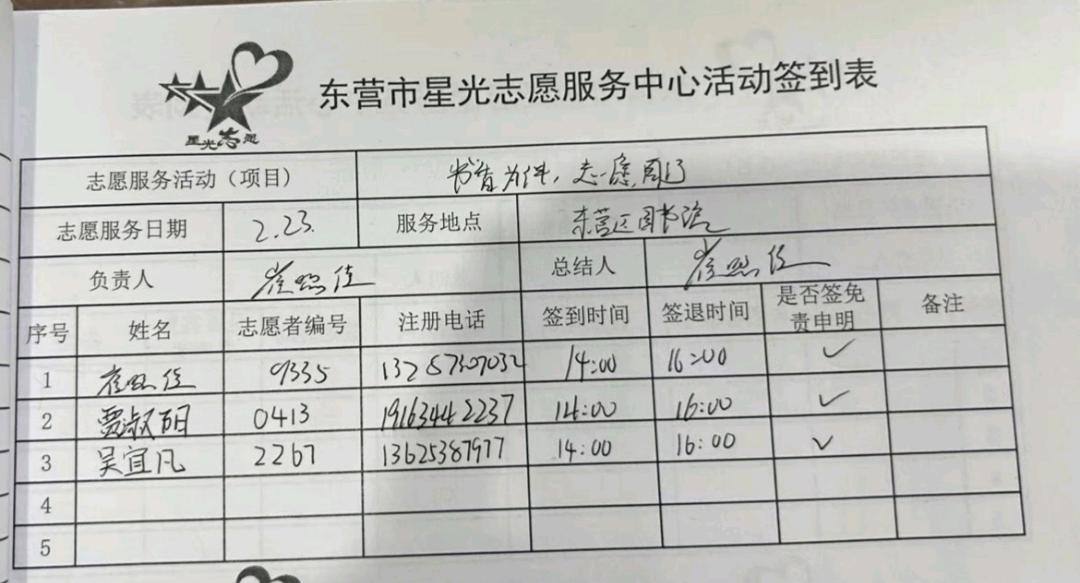 星光志愿
东营市星光志愿服务中心活动签到表
志愿服务活动（项目） 书香为伴，志愿同行
志愿服务日期 2.23. 服务地点 东营区图书馆
负责人 崔熙佳 总结人 崔熙佳
序号 姓名 志愿者编号 注册电话 签到时间 签退时间 是否签免责申明 备注
1 崔熙佳 9335 13287307032 14:00 16:00 ✓
2 贾淑明 0413 19163442237 14:00 16:00 ✓
3 吴宜凡 2267 13625387977 14:00 16:00 ✓
4
5